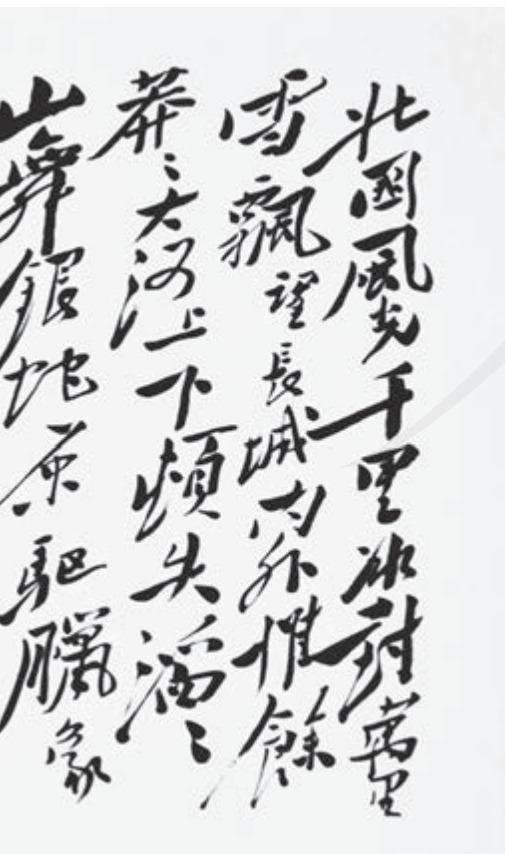 北國風光千里冰封萬里
雪飄望長城内外惟餘
莽〻大河上下頓失滔〻
山舞銀蛇原驅臘象